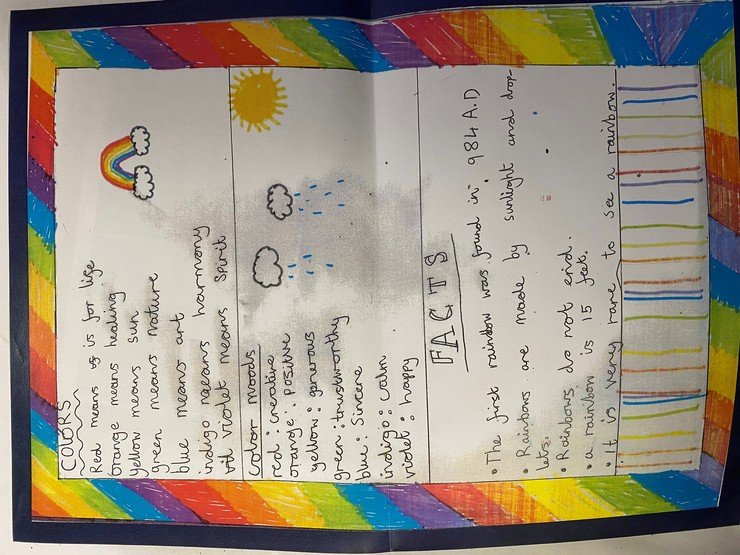 COLORS
Red means is for life
Orange means healing
Yellow means sun
green means nature
blue means art
indigo means harmony
violet means spirit
colour moods
red : creative
orange : positive
yellow : generous
green : trustworthy
blue : Sincere
indigo : calm
violet : happy
FACTS
• The first rainbow was found in 984 A.D
• Rainbows are made by sunlight and drop-
lets.
• Rainbows do not end.
• a rainbow is 15 feet.
• It is very rare to see a rainbow.